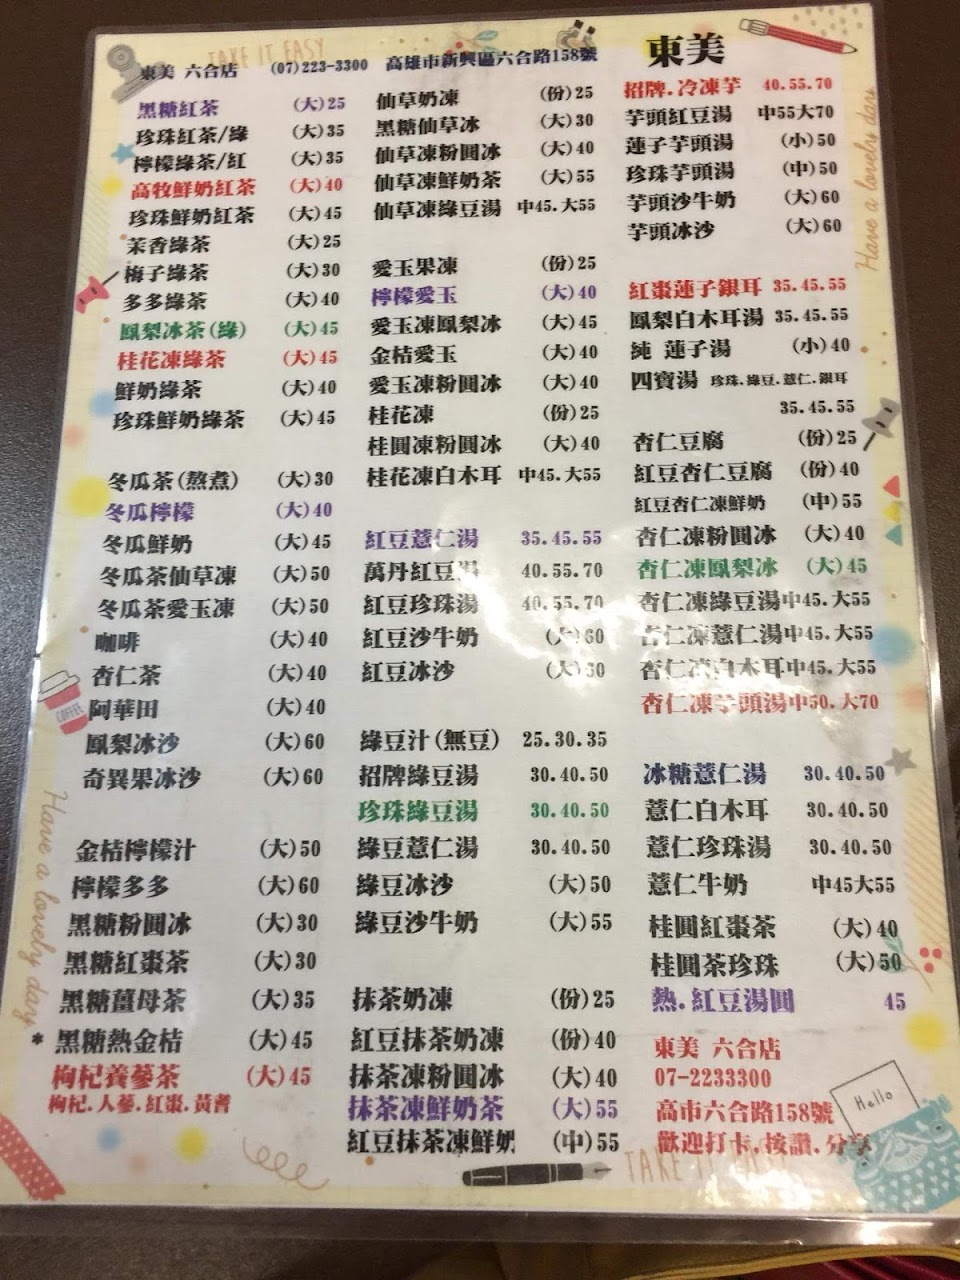 TAKE IT EASY
東美 六合店 (07)223-3300 高雄市新興區六合路158號
東美
黑糖紅茶 (大)25
珍珠紅茶/綠 (大)35
檸檬綠茶/紅 (大)35
高牧鮮奶紅茶 (大)40
珍珠鮮奶紅茶 (大)45
茉香綠茶 (大)25
梅子綠茶 (大)30
多多綠茶 (大)40
鳳梨冰茶(綠) (大)45
桂花凍綠茶 (大)45
鮮奶綠茶 (大)40
珍珠鮮奶綠茶 (大)45
冬瓜茶(熬煮) (大)30
冬瓜檸檬 (大)40
冬瓜鮮奶 (大)45
冬瓜茶仙草凍 (大)50
冬瓜茶愛玉凍 (大)50
咖啡 (大)40
杏仁茶 (大)40
阿華田 (大)40
鳳梨冰沙 (大)60
奇異果冰沙 (大)60
金桔檸檬汁 (大)50
檸檬多多 (大)60
黑糖粉圓冰 (大)30
黑糖紅棗茶 (大)30
黑糖薑母茶 (大)35
*黑糖熱金桔 (大)45
枸杞養蔘茶 (大)45
枸杞.人蔘.紅棗.黃耆
仙草奶凍 (份)25
黑糖仙草冰 (大)30
仙草凍粉圓冰 (大)40
仙草凍鮮奶茶 (大)55
仙草凍綠豆湯 中45.大55
愛玉果凍 (份)25
檸檬愛玉 (大)40
愛玉凍鳳梨冰 (大)45
金桔愛玉 (大)40
愛玉凍粉圓冰 (大)40
桂花凍 (份)25
桂圓凍粉圓冰 (大)40
桂花凍白木耳 中45.大55
紅豆薏仁湯 35.45.55
萬丹紅豆湯 40.55.70
紅豆珍珠湯 40.55.70
紅豆沙牛奶 (大)60
紅豆冰沙 (大)
綠豆汁(無豆) 25.30.35
招牌綠豆湯 30.40.50
珍珠綠豆湯 30.40.50
綠豆薏仁湯 30.40.50
綠豆冰沙 (大)50
綠豆沙牛奶 (大)55
抹茶奶凍 (份)25
紅豆抹茶奶凍 (份)40
抹茶凍粉圓冰 (大)40
抹茶凍鮮奶茶 (大)55
紅豆抹茶凍鮮奶 (中)55
招牌.冷凍芋 40.55.70
芋頭紅豆湯 中55大70
蓮子芋頭湯 (小)50
珍珠芋頭湯 (中)50
芋頭沙牛奶 (大)60
芋頭冰沙 (大)60
紅棗蓮子銀耳 35.45.55
鳳梨白木耳湯 35.45.55
純 蓮子湯 (小)40
四寶湯 珍珠.綠豆.薏仁.銀耳
35.45.55
杏仁豆腐 (份)25
紅豆杏仁豆腐 (份)40
紅豆杏仁凍鮮奶 (中)55
杏仁凍粉圓冰 (大)40
杏仁凍鳳梨冰 (大)45
杏仁凍綠豆湯中45.大55
杏仁凍薏仁湯中45.大55
杏仁凍白木耳中45.大55
杏仁凍芋頭湯中50.大70
冰糖薏仁湯 30.40.50
薏仁白木耳 30.40.50
薏仁珍珠湯 30.40.50
薏仁牛奶 中45大55
桂圓紅棗茶 (大)40
桂圓茶珍珠 (大)50
熱.紅豆湯圓 45
東美 六合店
07-2233300
高市六合路158號
歡迎打卡,按讚.分享
Have a lovely day
Have a lovely day
COFFEE
Hello
TAKE IT EASY